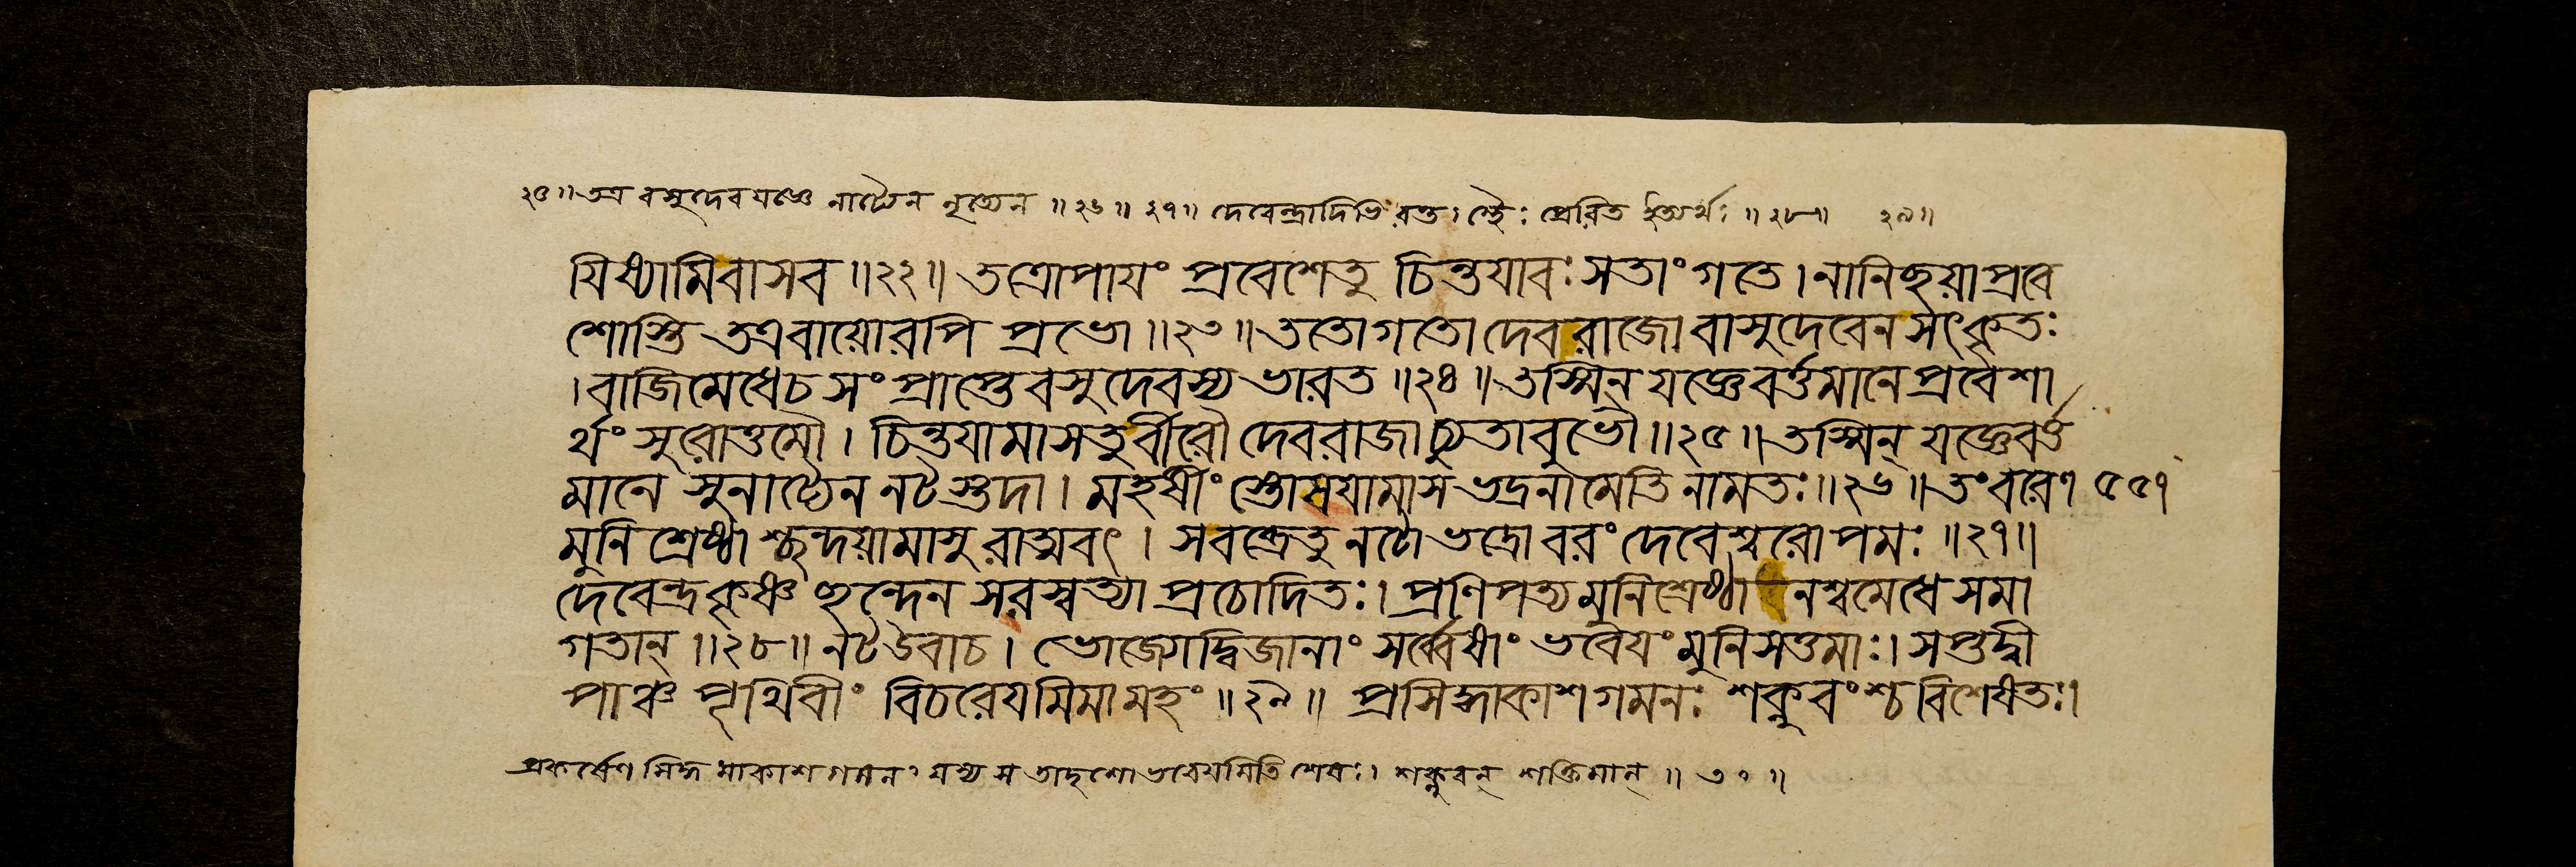 ২৫॥ তত্র বসুদেবযজ্ঞে নাট্যেন নৃত্যেন ॥২৬॥ ২৭॥ দেবেন্দ্রাদিভি প্রেরিত ইত্যর্থঃ ॥২৮॥ ২৯॥
যিষ্যামিবাসব ॥২২॥ তত্রোপাযং প্রবেশেতু চিন্তযাবঃ সতাং গতে। নানিহ্নয়াপ্রবে
শোস্তি তত্রবায়োরপি প্রভো ॥২৩॥ ততোগতো দেবরাজো বাসুদেবেন সৎকৃতঃ
। বাজিমেধেচ সংপ্রাপ্তে বসুদেবস্য ভারত ॥২৪॥ তস্মিন্ যজ্ঞেবর্ত্তমানে প্রবেশা
র্থং সুরোত্তমৌ। চিন্তযামাসতুর্বীরৌ দেবরাজাচ্যুতাবুভৌ ॥২৫॥ তস্মিন্ যজ্ঞেবর্ত্ত
মানে সুনাট্যেন নটস্তদা। মহর্ষীং স্তোষযামাস ভদ্রনামেতি নামতঃ ॥২৬॥ তংবরেণ ৫৫৭
মুনিশ্রেষ্ঠাশ্ছন্দয়ামাসুরাত্মবৎ। সবব্রেতু নটোভদ্রোবরং দেবেশ্বরোপমঃ ॥২৭॥
দেবেন্দ্রকৃষ্ণ ছন্দেন সরস্বত্যা প্রচোদিতঃ। প্রণিপত্যমুনিশ্রেষ্ঠা নশ্বমেধে সমা
গতান্ ॥২৮॥ নটউবাচ। ভোজ্যোদ্বিজানাং সর্ব্বেষাং ভবেযং মুনিসত্তমাঃ। সপ্তদ্বী
পাঞ্চ পৃথিবীং বিচরেযমিমামহং ॥২৯॥ প্রসিদ্ধাকাশগমনঃ শক্নুবংশ্চ বিশেষতঃ।
প্রকর্ষেণ সিদ্ধমাকাশগমনং যস্য স তাদৃশো ভবেযমিতি শেষঃ। শক্নুবন্ শক্তিমান্ ॥ ৩০ ॥